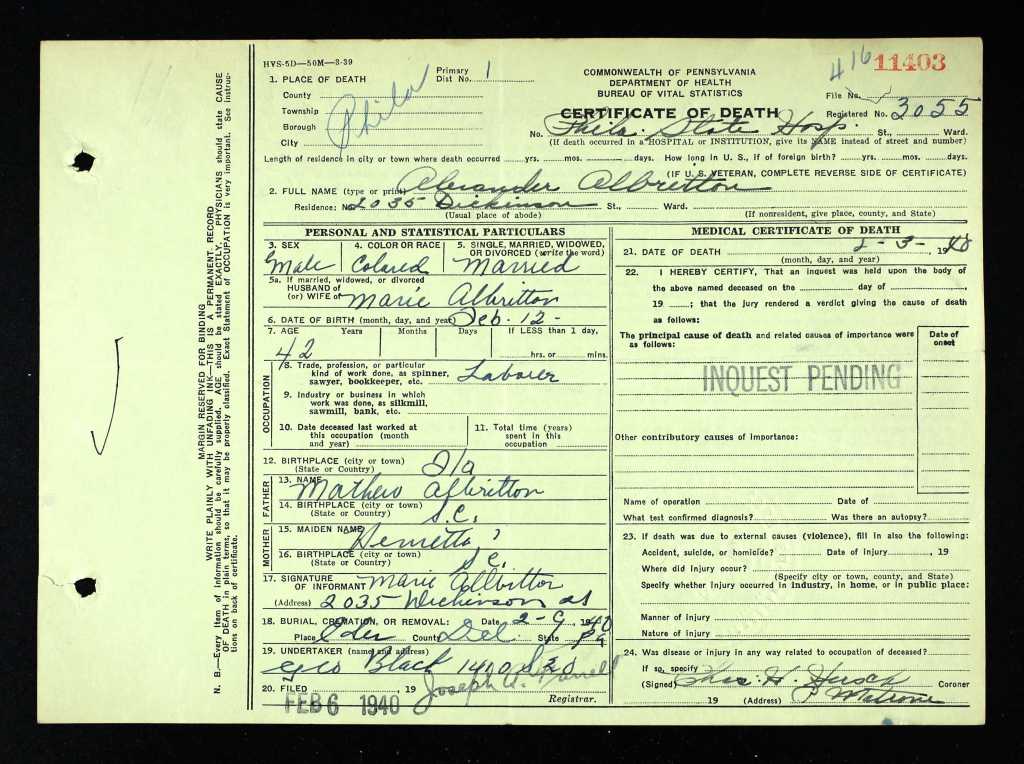 HVS-5D—50M—3-39
Primary Dist No. 1
416 11403
COMMONWEALTH OF PENNSYLVANIA
DEPARTMENT OF HEALTH
BUREAU OF VITAL STATISTICS
File No.
CERTIFICATE OF DEATH
Registered No. 3055
1. PLACE OF DEATH
County
Township
Borough
City
Phila
No. Phila. State Hosp. St., Ward.
(If death occurred in a HOSPITAL or INSTITUTION, give its NAME instead of street and number)
Length of residence in city or town where death occurred yrs. mos. days. How long in U. S., if of foreign birth? yrs. mos. days.
(IF U. S. VETERAN, COMPLETE REVERSE SIDE OF CERTIFICATE)
2. FULL NAME (type or print) Alexander Albritton
Residence: No. 2035 Dickinson St., Ward.
(Usual place of abode) (If nonresident, give place, county, and State)
PERSONAL AND STATISTICAL PARTICULARS
3. SEX 4. COLOR OR RACE 5. SINGLE, MARRIED, WIDOWED, OR DIVORCED (write the word)
Male Colored Married
5a. If married, widowed, or divorced
HUSBAND of
(or) WIFE of Marie Albritton
6. DATE OF BIRTH (month, day, and year) Feb. 12 -
7. AGE Years Months Days If LESS than 1 day,
42 hrs. or mins.
OCCUPATION
8. Trade, profession, or particular
kind of work done, as spinner,
sawyer, bookkeeper, etc. Laborer
9. Industry or business in which
work was done, as silkmill,
sawmill, bank, etc.
10. Date deceased last worked at
this occupation (month
and year)
11. Total time (years)
spent in this
occupation
12. BIRTHPLACE (city or town)
(State or Country) Fla
FATHER
13. NAME Mathew Albritton
14. BIRTHPLACE (city or town)
(State or Country) S.C.
MOTHER
15. MAIDEN NAME Henrietta ?
16. BIRTHPLACE (city or town)
(State or Country) S.C.
17. SIGNATURE
OF INFORMANT Marie Albritton
(Address) 2035 Dickinson st
18. BURIAL, CREMATION, OR REMOVAL: Date 2-9, 1940
Place Eden County Del State Pa
19. UNDERTAKER (name and address)
Geo Black 1400 S 20
20. FILED , 19
FEB 6 1940
Registrar.
MEDICAL CERTIFICATE OF DEATH
21. DATE OF DEATH 2-3-, 1940
(month, day, and year)
22. I HEREBY CERTIFY, That an inquest was held upon the body of
the above named deceased on the day of ,
19 ; that the jury rendered a verdict giving the cause of death
as follows:
The principal cause of death and related causes of importance were
as follows:
Date of
onset
INQUEST PENDING
Other contributory causes of importance:
Name of operation Date of
What test confirmed diagnosis? Was there an autopsy?
23. If death was due to external causes (violence), fill in also the following:
Accident, suicide, or homicide? Date of injury , 19
Where did injury occur?
(Specify city or town, county, and State)
Specify whether injury occurred in industry, in home, or in public place:
Manner of injury
Nature of injury
24. Was disease or injury in any way related to occupation of deceased?
If so, specify
(Signed) Chas. H. Hersch Coroner
19 (Address)
MARGIN RESERVED FOR BINDING
WRITE PLAINLY WITH UNFADING INK—THIS IS A PERMANENT RECORD
N. B.—Every item of information should be carefully supplied. AGE should be stated EXACTLY. PHYSICIANS should state CAUSE
OF DEATH in plain terms, so that it may be properly classified. Exact Statement of OCCUPATION is very important. See instruc-
tions on back of certificate.